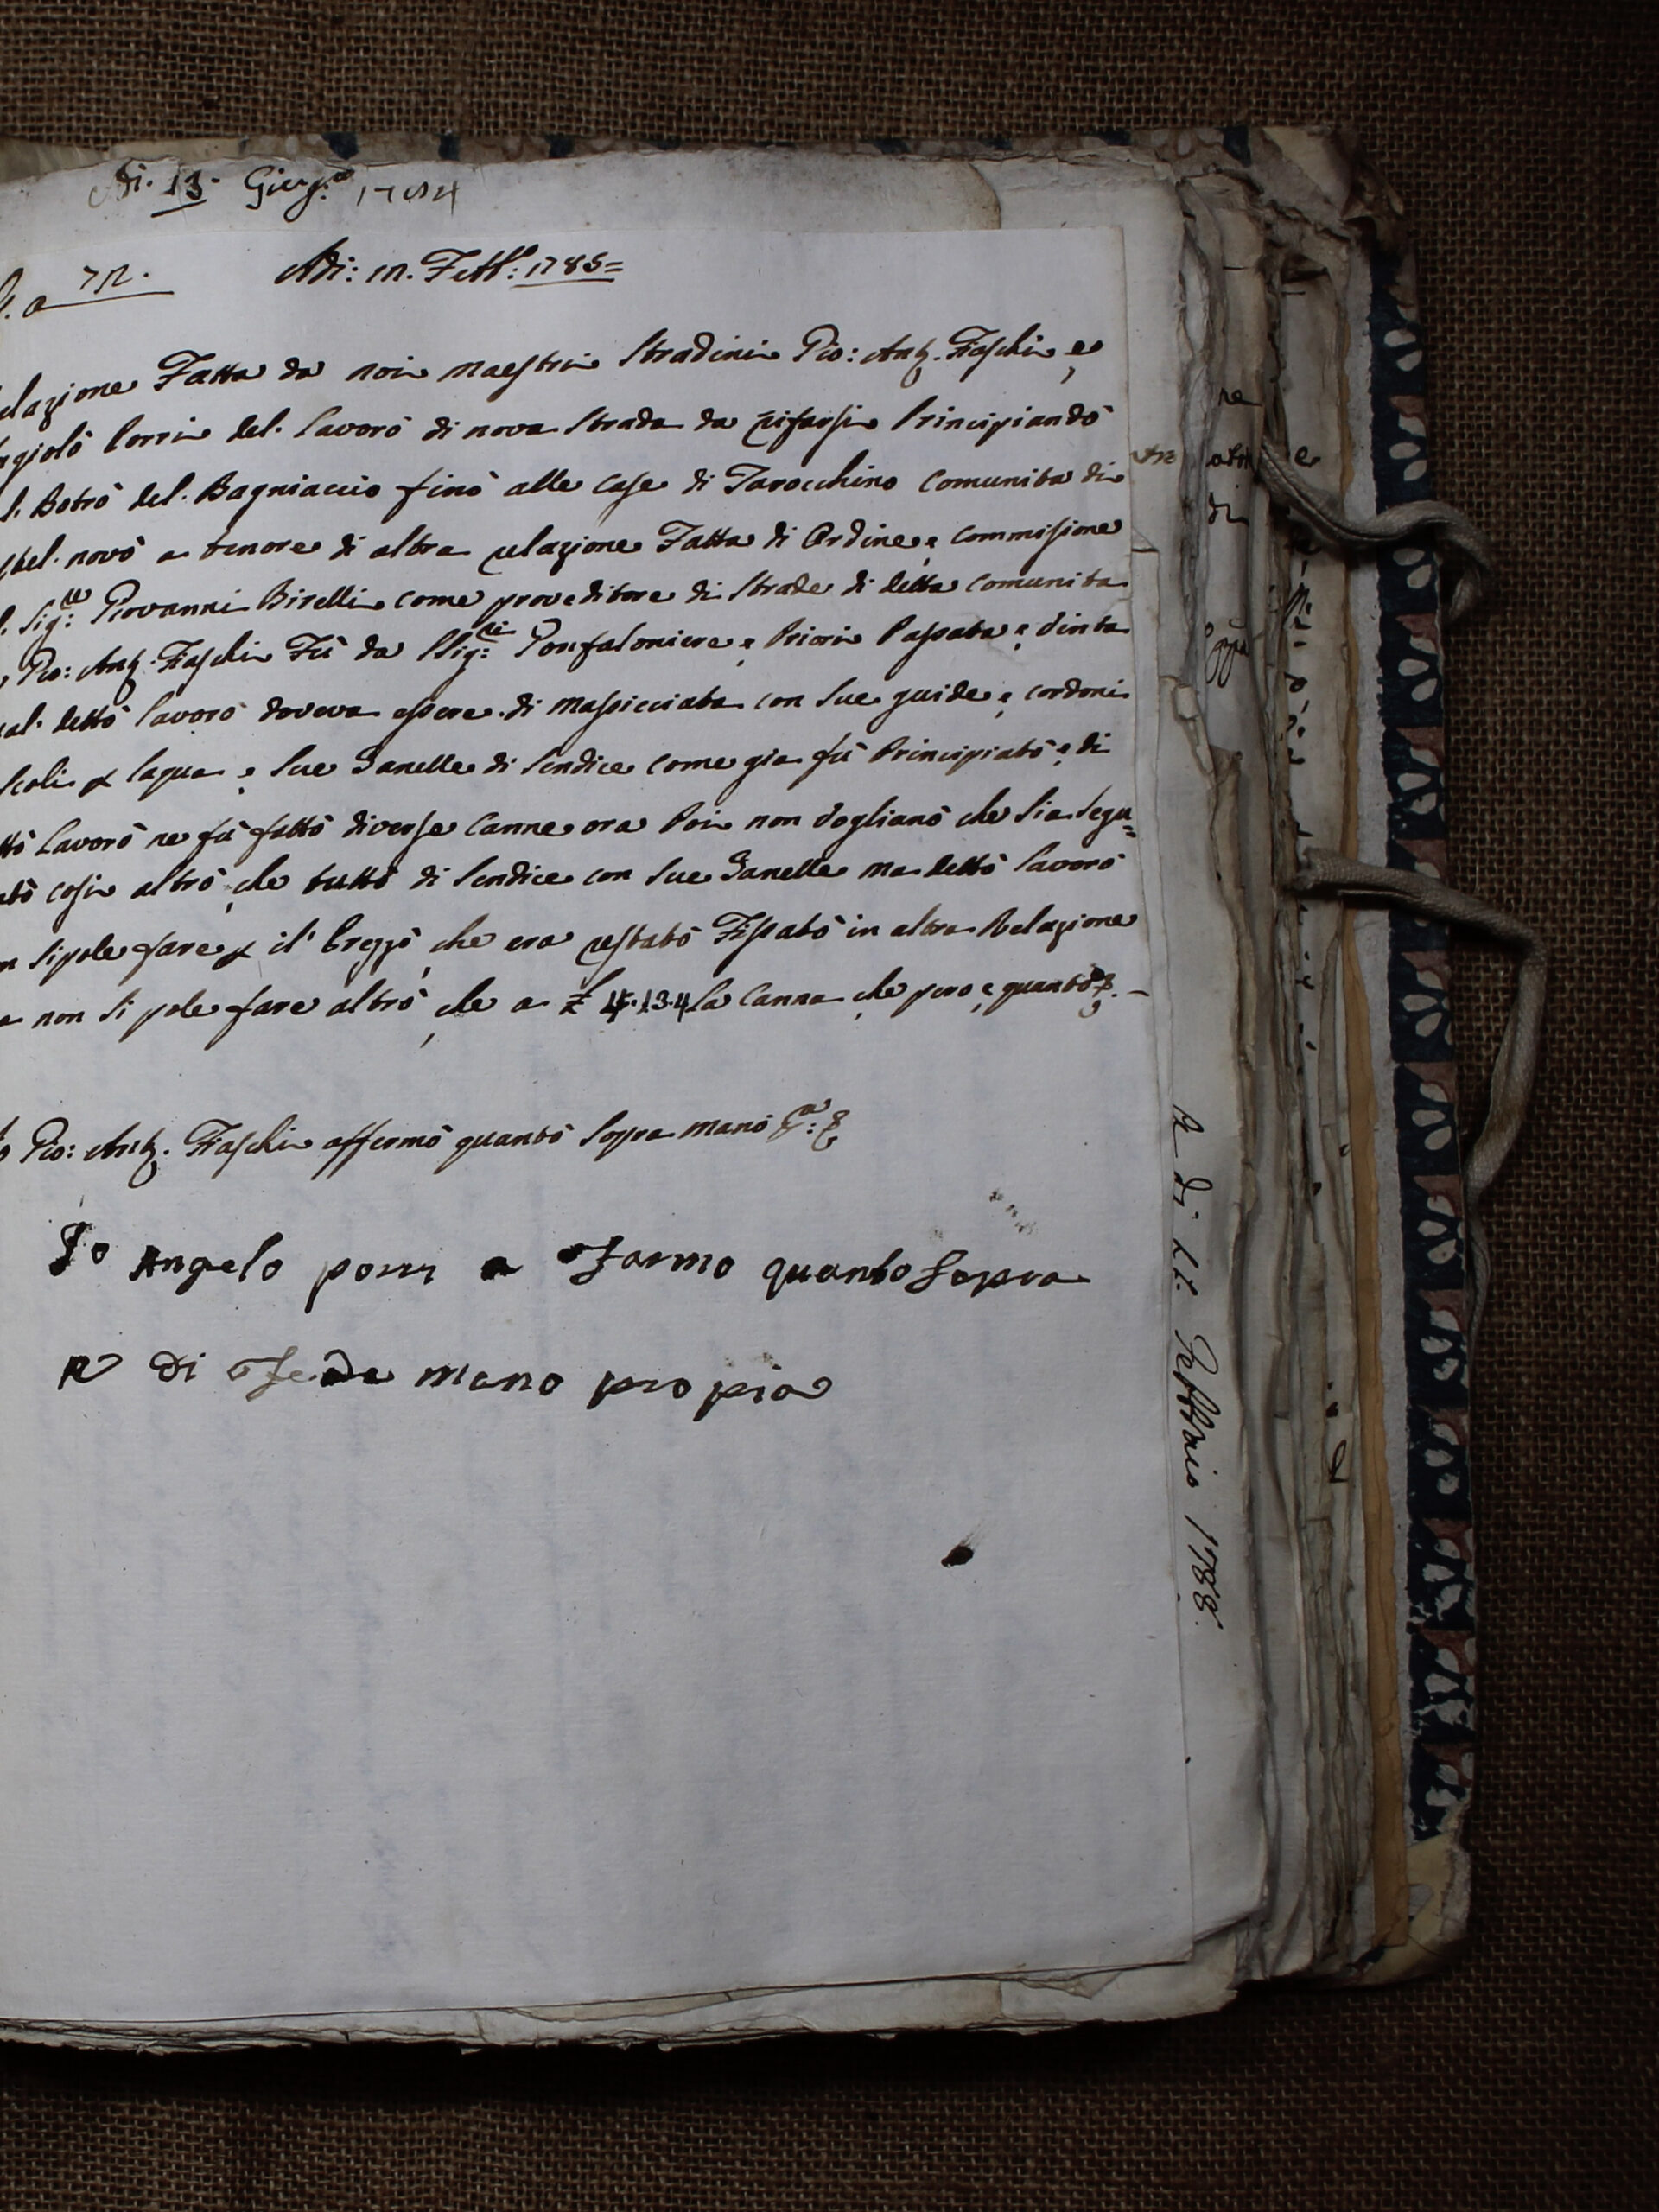 Adi. 13. Giug.o 1784
Adi: in. Febb.o: 1785=
elazione Fatta da noi maestri Stradini Gio: Antt. Fiaschi e
ngiolò Porri del. Lavorò di nova Strada da rifarsi Principiandò
l. Botrò del. Bagniaccio finò alle Case di Tarocchino Comunita di
stel. novò a tenore di altra relazione Fatta di Ordine e Commisione
l. Sig.re Giovanni Birelli come proveditore di Strade di detta Comunita
Gio: Antt. Fiaschi Fù da SSig.ri Gonfaloniere e Priori Passata e Vinta
ual. dettò lavorò doveva essere di massicciata con Sue guide e cordoni
Scoli p laqua e Sue Zanelle di Sendice come gia fù Principiatò e di
ttò Lavorò ne fù fattò diverse Canne ora Poi non Vogliano che Sia Segu=
atò cosi altrò che tuttò di Sendice con Sue Zanelle ma dettò Lavorò
n Sipole fare p il' Prezzò che era restatò Fissatò in altra Relazione
a non Si pole fare altrò che a £ 4.13.4 la Canna che pero e quantò
Gio: Antt. Fiaschi affermò quantò Sopra manò
Io Angelo porri a Fermo quanto Sopra
e di Fede mano propia
re
altr
di
A Di Lt: Febbraio 1788.